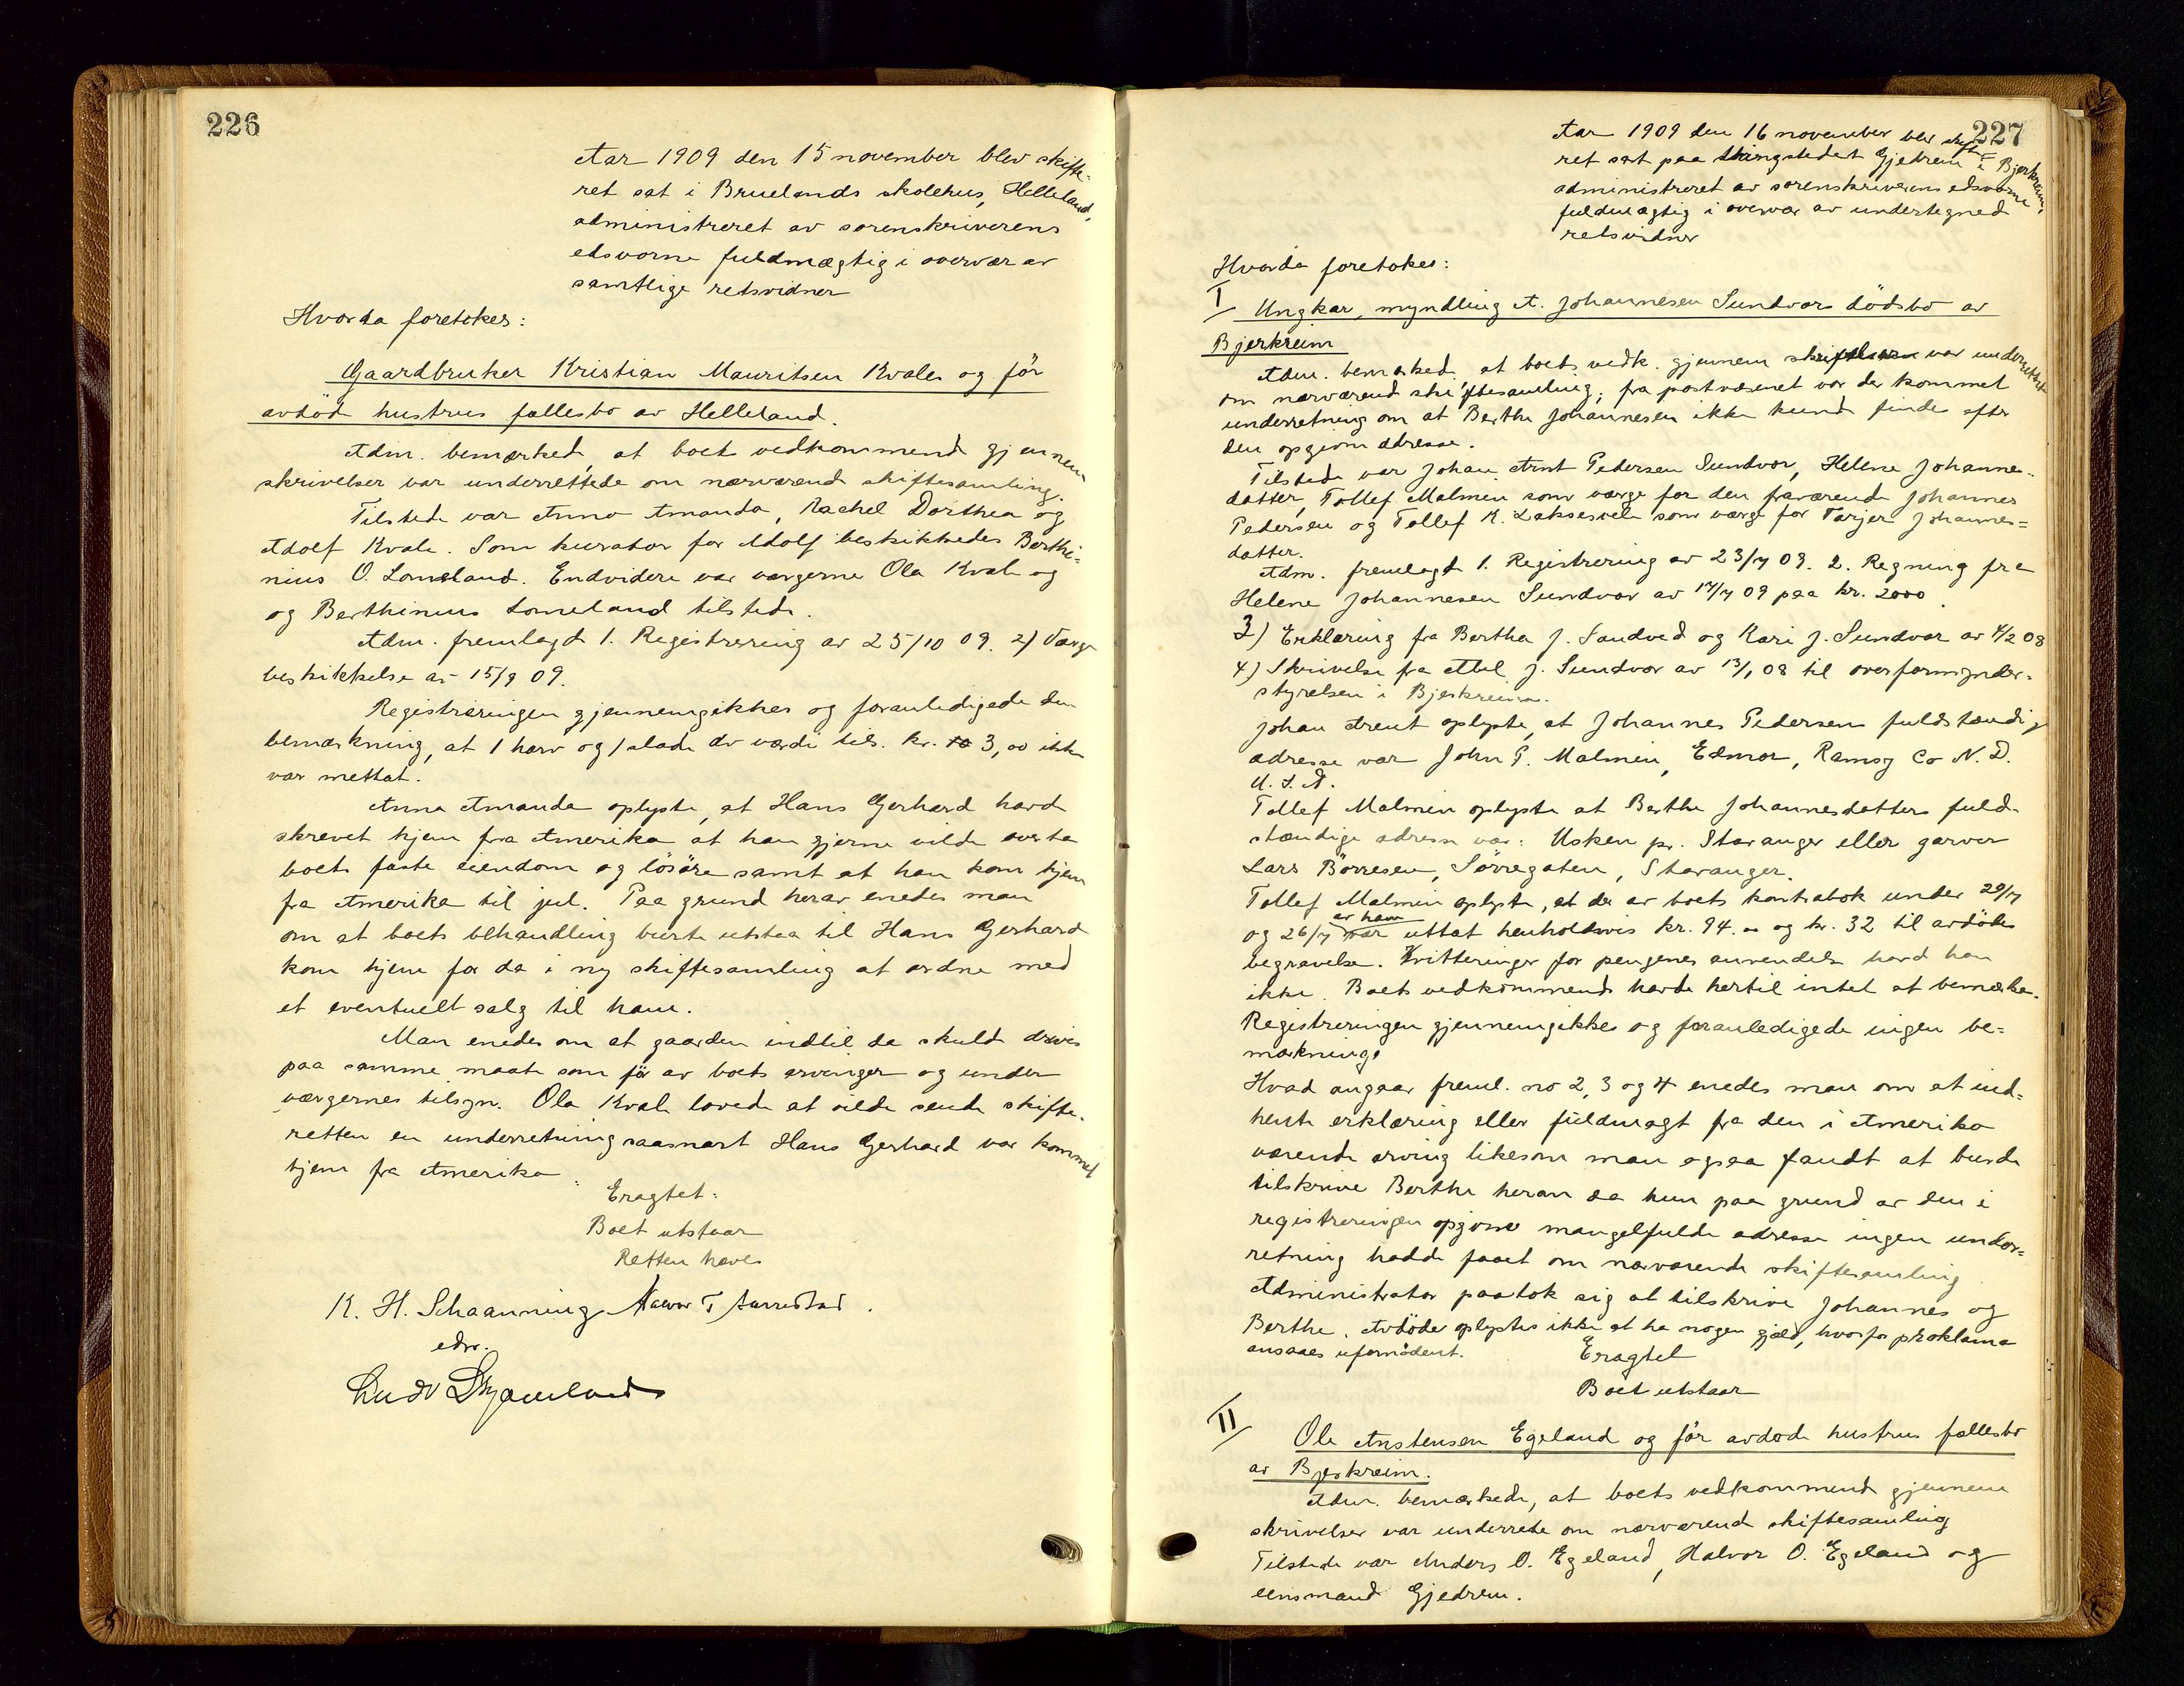 226
Aar 1909 den 15 november blev skifte-
ret sat i Bruelands skolehus, Helleland,
administreret av sorenskriverens
edsvorne fuldmægtig i overvær av
samtlige retsvidner
Hvorda foretokes:
Gaardbruker Kristian Mauritsen Kvales og för
avdöde hustrus fællesbo av Helleland.
Adm. bemærked, at boets vedkommend gjennem
skrivelser var underrettede om nærværend skiftesamling.
Tilstede var Anna Amanda, Rachel Dorthea og
Adolf Kvale. Som kurator for Adolf beskikkedes Berthi-
nius O. Lomeland. Endvidere var værgerne Ola Kvale og
og Berthinius Lomeland tilstede.
Adm. fremlagde 1. Registrering av 25/10 09. 2) Værge
beskikkelse av 15/9 09.
Registreringen gjennemgikkes og foranledigede den
bemærkning, at 1 harv og 1 slade av værdi tils. kr. 3,00 ikke
var mettat.
Anna Amanda oplyste, at Hans Gerhard havde
skrevet hjem fra Amerika at han gjerne vilde overta
boets faste eiendom og lösöre samt at han kom hjem
fra Amerika til jul. Paa grund herav enedes man
om at boets behandling burte utstaa til Hans Gerhard
kom hjem for da i ny skiftesamling at ordne med
et eventuelt salg til ham.
Man enedes om at gaarden indtil da skulde drives
paa samme maate som för av boets arvinger og under
værgernes tilsyn. Ola Kvale lovede at vilde sende skifte-
retten en underretning saasnart Hans Gerhard var kommet
hjem fra Amerika.
Eragtet:
Boet utstaar
Retten hæves
K. H. Schaanning
edsv.
227
Aar 1909 den 16 november blev skifte-
ret sat paa thingstedet Gjedrem i Bjerkreim,
administreret av sorenskriverens edsvorne
fuldmægtig i overvær av undertegnede
retsvidner
Hvorda foretokes:
I
Ungkar, myndling A. Johannesen Sundvors dödsbo av
Bjerkreim
Adm. bemærked, at boets vedk. gjennem skrivelser var underrettet
om nærværend skiftesamling; fra postvæsenet var der kommet
underretning om at Berthe Johannesen ikke kunde findes efter
den opgivne adresse.
Tilstede var Johan Arnt Pedersen Sundvor, Helene Johannes-
datter, Tollef Malmin som værge for den fraværende Johannes
Pedersen og Tollef K. Laksesvele som værge for Tarjer Johannes=
datter.
Adm. fremlagde 1. Registrering av 23/7 09. 2. Regning fra
Helene Johannesen Sundvor av 17/7 09 paa kr. 2000.
3) Erklæring fra Bertha J. Sandved og Kari J. Sundvor av 4/2 08
4) Skrivelse fra Abel J. Sundvor av 13/1 08 til overformynder-
styrelsen i Bjerkreim.
Johan Arent oplyste, at Johannes Pedersens fuldstændig
adresse var John P. Malmin, Edmor, Ramsy Co N. D.
U. S. A.
Tollef Malmin oplyste at Berthe Johannesdatters fuld-
stændige adresse var: Usken pr. Stavanger eller garver
Lars Börresen, Sörregaten, Stavanger.
Tollef Malmin oplyste, at der av boets kontrabok under 29/7
av ham
og 26/7 var uttat henholdsvis kr. 94.00 og kr. 32 til avdödes
begravelse. Kvitteringer for pengenes anvendelse havde han
ikke. Boets vedkommende havde hertil intet at bemærke.
Registreringen gjennemgikkes og foranledigede ingen be=
mærkning.
Hvad angaar freml. no 2, 3 og 4 enedes man om at ind=
hente erklæring eller fuldmagt fra den i Amerika
værende arving likesom man ogsaa fandt at burde
tilskrive Berthe heran da hun paa grund av den i
registreringen opgivne mangelfulde adresse ingen under=
retning hadde faaet om nærværende skiftesamling.
Administrator paatok sig at tilskrive Johannes og
Berthe. Avdöde oplystes ikke at ha nogen gjæld, hvorfor proklama
ansaaes ufornödent.
Eragtet
Boet utstaar
II
Ole Anstensen Egeland og för avdöde hustrus fællesbo
av Bjerkreim.
Adm. bemærkede, at boets vedkommende gjennem
skrivelser var underrede om nærværend skiftesamling
Tilstede var Anders O. Egeland, Halvor O. Egeland og
lensmand Gjedrem.